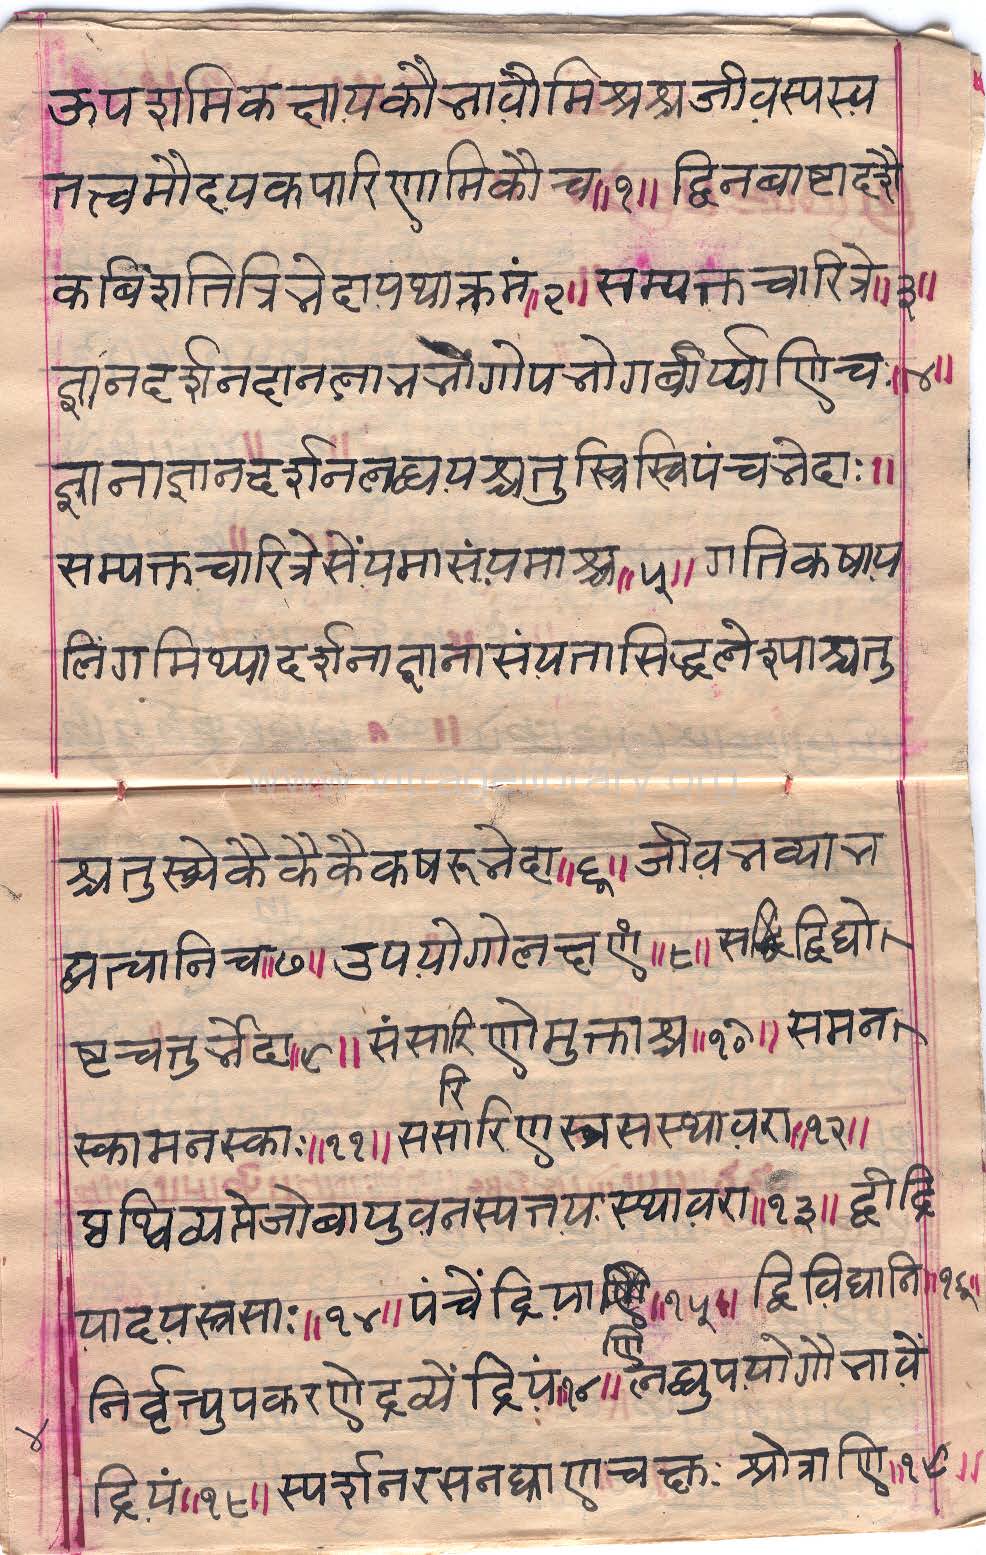 ऊपशमिकक्षायकौभावौमिश्रश्चजीवस्यस्व
तत्त्वमौदयकपारिणामिकौच॥१॥ द्विनबाष्टादशै
कबिंशतित्रिभेदायथाक्रमं॥२॥ सम्यक्तचारित्रे॥३॥
ज्ञानदर्शनदानलाभभोगोपभोगबीर्य्याणिच:॥४॥
ज्ञानाज्ञानदर्शनलब्धयश्चतुस्त्रित्रिपंचभेदाः॥
सम्यक्तचारित्रेसंयमासंयमाश्च॥५॥ गतिकषाय
लिंगमिथ्यादर्शनाज्ञानासंयतासिद्धलेश्याश्चतु
श्चतुस्त्र्येकैकैकैकषरूभेदा॥६॥ जीवभव्याभ
व्यत्वानिच॥७॥ उपयोगोलक्षणं॥८॥ सद्विद्विधो
ष्टचतुर्भेदा॥९॥ संसारिणोमुक्ताश्च॥१०॥ समन
स्कामनस्काः॥११॥ ससारिणस्त्रसस्थावरा॥१२॥
रि
प्रथिव्यप्तेजोबायुवनस्पतयःस्थावरा॥१३॥ द्वीद्रि
यादयस्त्रसाः॥१४॥ पंचेंद्रियाणि॥१५॥ द्विविधानि॥१६॥
णि
निर्वृत्युपकरणेद्रव्येंद्रियं॥१७॥ लब्ध्युपयोगौभावें
द्रियं॥१८॥ स्पर्शनरसनघ्राणचक्षुः श्रोत्राणि॥१९॥
४
www.vitragelibrary.org